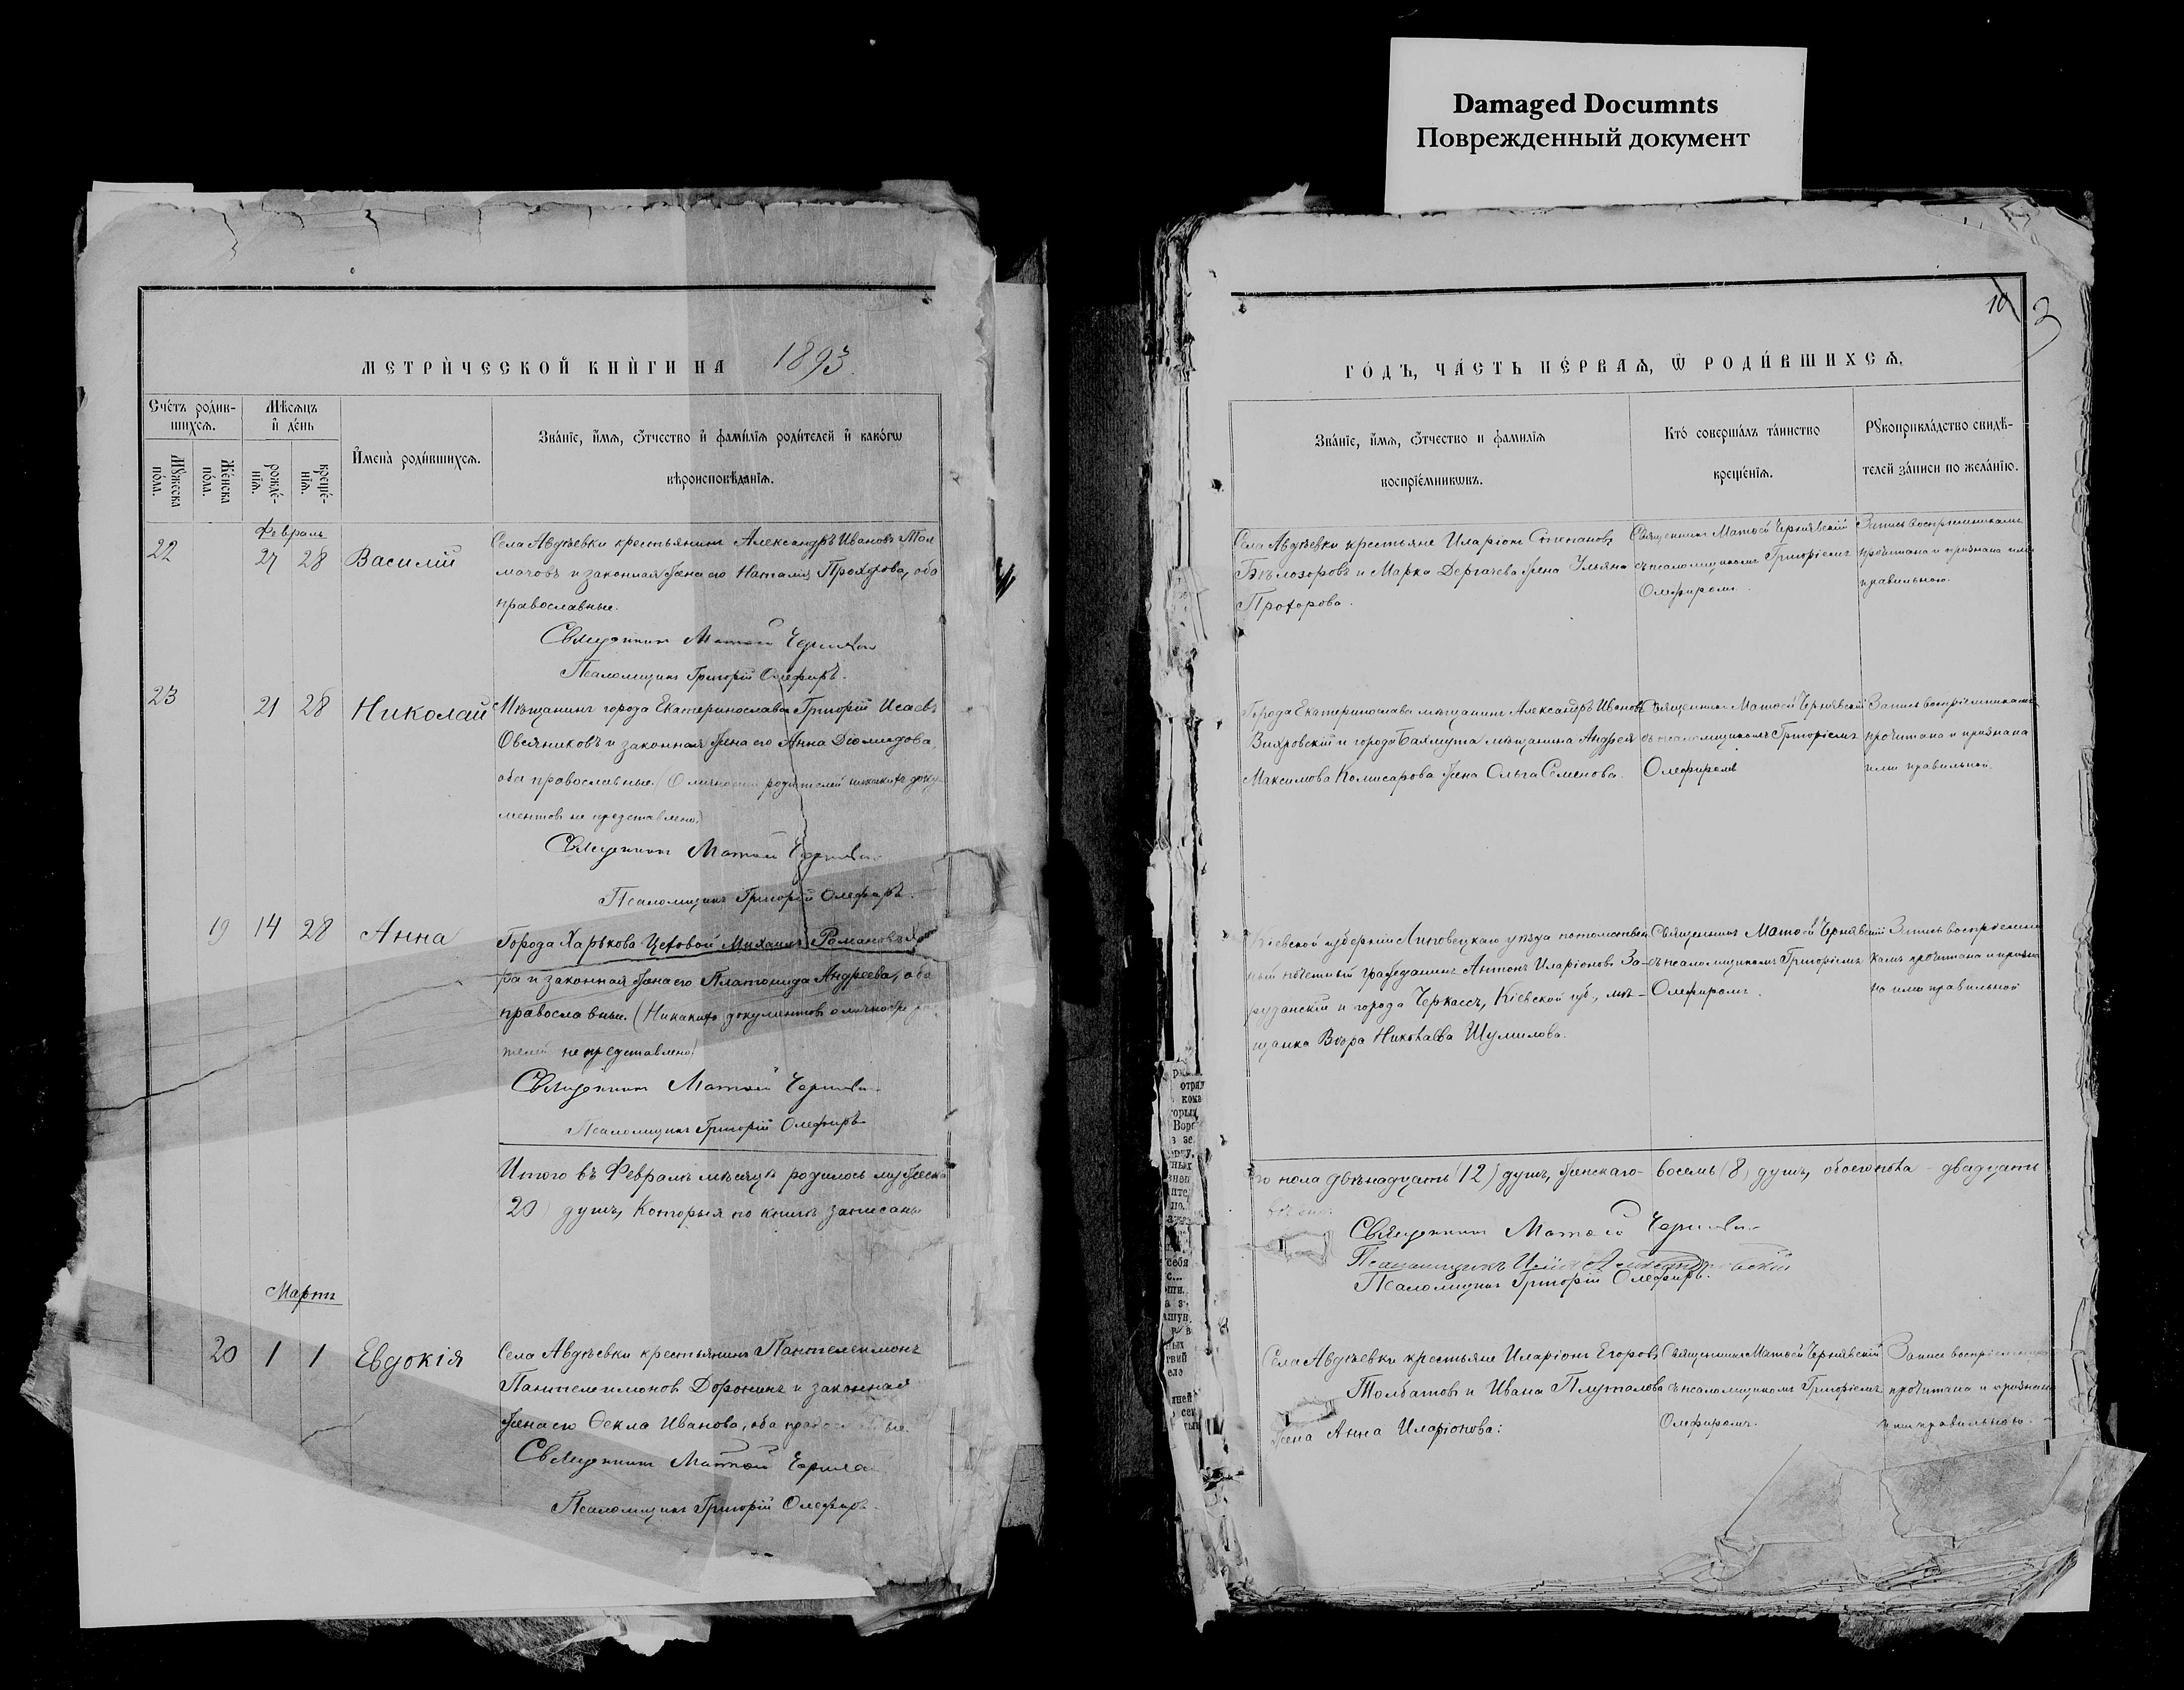 Damaged Documnts
Поврежденный документ
МЕТРИ́ЧЕСКОЙ КНИ́ГИ НА 1893.
Сче́тъ роди́в-
шихсѧ.
Мѣсѧцъ
и де́нь
И҆мена̀ роди́вшихсѧ.
Зва́нїе, и҆́мѧ, ѻ҆́тчество и҆ фамі́лїѧ роди́телей и҆ како́гѡ
вѣроисповѣ́данїѧ.
Мꙋ́жеска по́ла.
Же́нска по́ла.
рожде́-нїѧ.
креще́-нїѧ.
Февраль
22
27 28 Василій
Села Авдѣевки крестьянинъ Александръ Ивановъ Тол
мачовъ и законная жена его Наталія Прохорова, оба
православные.
Священникъ Матѳей
Псаломщикъ Григорій Олефиръ.
23
21 28 Николай
Мѣщанинъ города Екатеринослава Григорій Исаевъ
Овсяниковъ и законная жена его Анна Діомидова,
оба православные. (О личности родителей никакихъ доку-
ментовъ не представлено.)
Священникъ Матѳей
Псаломщикъ Григорій Олефиръ.
19 14 28 Анна
Города Харькова Цеховой Михаилъ Романовъ
ра и законная жена его Платонида Андреева, оба
православные. (Никакихъ документовъ о личности
телей не представлено)
Священникъ Матѳей
Псаломщикъ Григорій Олефиръ
Итого въ Февралѣ мѣсяцѣ родилось мужеска
(20) душъ, которыя по книгѣ записаны
Мартъ
20 1 1 Евдокія
Села Авдѣевки крестьянинъ Пантелеимонъ
Пантелеимоновъ Доронинъ и законная
жена его Ѳекла Иванова, оба
Священникъ Матѳей
Псаломщикъ Григорій Олефиръ.
10 3
ГО́ДЪ, ЧА́СТЬ ПЕ́РВАѦ, Ѡ҆ РОДИ́ВШИХСѦ.
Зва́нїе, и҆́мѧ, ѻ҆́тчество и фамилїѧ
воспрїе́мникѡвъ.
Кто̀ соверша́лъ та́инство
креще́нїѧ.
Рꙋкоприкла́дство свидѣ́-
телей за́писи по жела́нїю.
Села Авдѣевки крестьяне Иларіонъ Степановъ
Бѣлозоровъ и Марка Дергачева жена Ульяна
Прохорова.
Священникъ Матѳей Чернявскій
съ псаломщикомъ Григоріемъ
Олефиромъ.
Запись воспріемникамъ
прочитана и признана ими
правильною.
Города Екатеринослава мѣщанинъ Александръ Ивановъ
Вихровскій и города Бахмута мѣщанина Андрея
Максимова Комисарова жена Ольга Семенова.
Священникъ Матѳей Чернявскій
съ псаломщикомъ Григоріемъ
Олефиромъ
Запись воспріемникамъ
прочитана и признана
ими правильной.
Кіевской губерніи Липовецкаго уѣзда потомствен
ный почетный гражданинъ Антонъ Иларіоновъ За-
рузанскій и города Черкассъ, Кіевской губ., мѣ-
щанка Вѣра Николаева Шумилова.
Священникъ Матѳей Чернявскій
съ псаломщикомъ Григоріемъ
Олефиромъ.
Запись воспріемни
камъ прочитана и призна
на ими правильной
го пола двѣнадцать (12) душъ, женскаго - восемь (8) душъ, обоего пола - двадцать
Священникъ Матѳей
Псаломщикъ
Псаломщикъ Григорій Олефиръ.
Села Авдѣевки крестьяне Иларіонъ Егоровъ
Толбатовъ и Ивана Плуталова
жена Анна Иларіонова:
Священникъ Матѳей Чернявскій
съ псаломщикомъ Григоріемъ
Олефиромъ.
Запись
прочитана и признана
ими правильною.